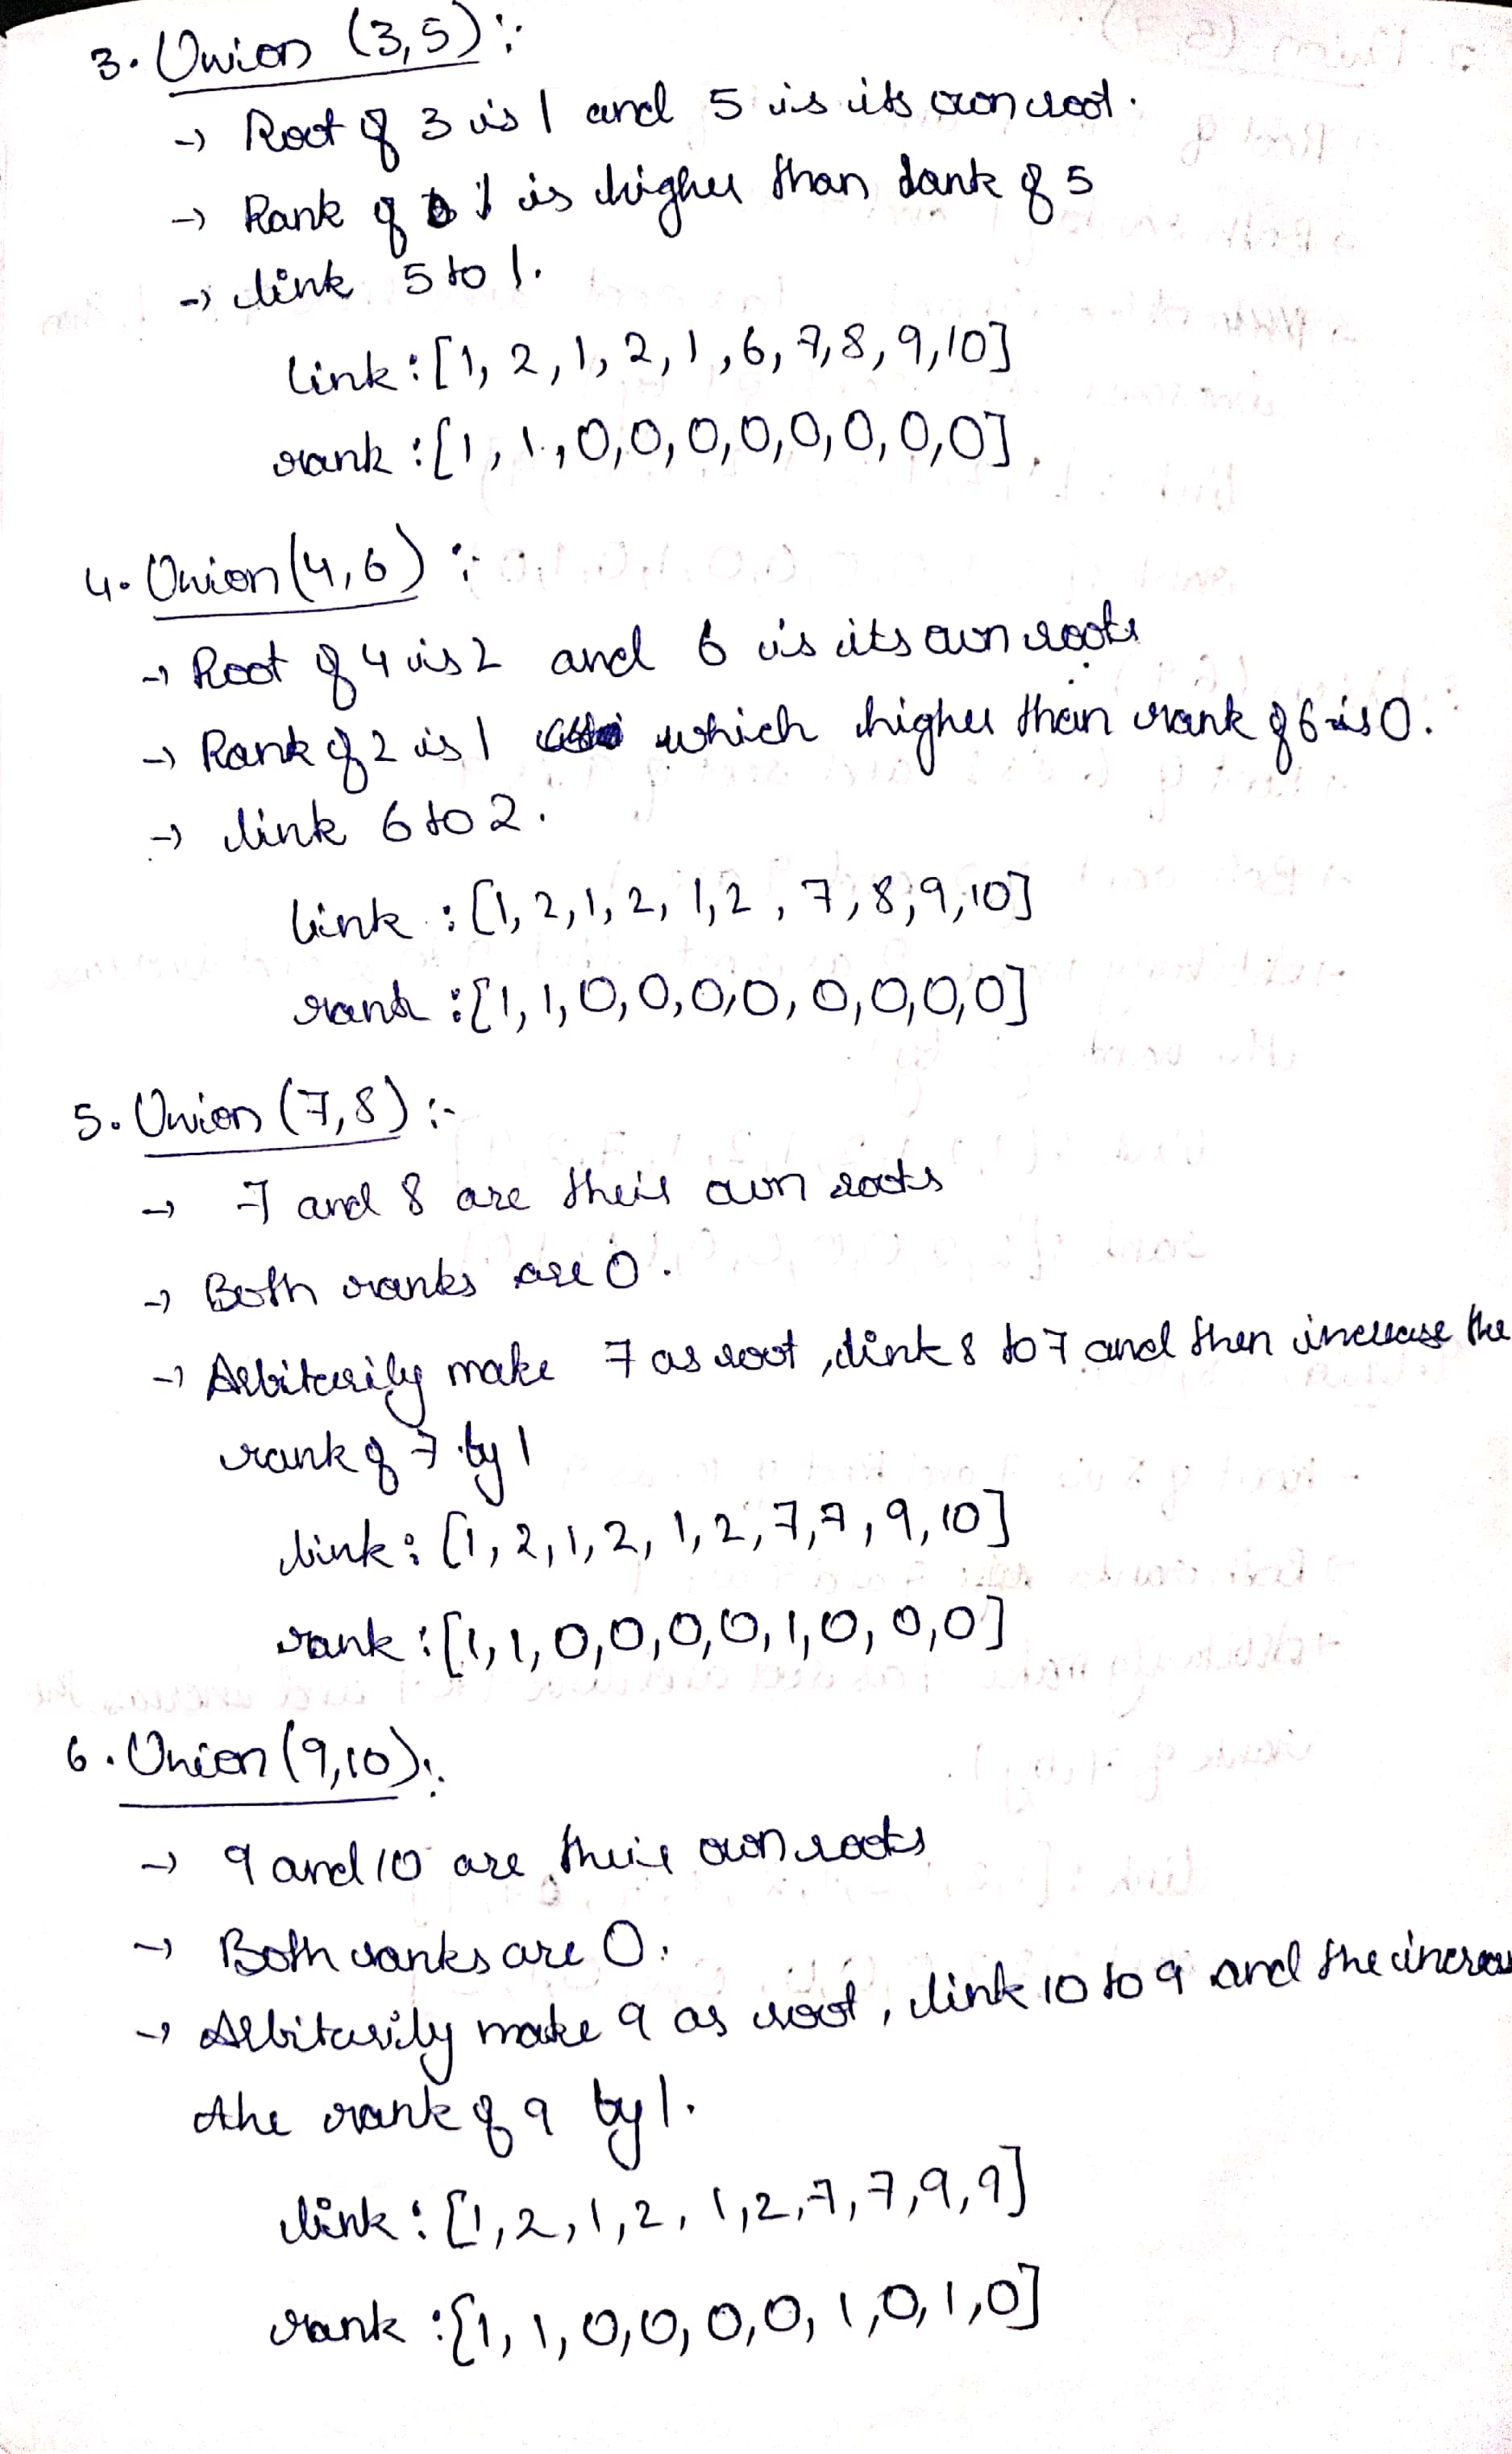 3. Union (3,5):
→ Root of 3 is 1 and 5 is its own root.
→ Rank of 1 is higher than rank of 5
→ link 5 to 1.
link : [1, 2, 1, 2, 1, 6, 7, 8, 9, 10]
rank : [1, 1, 0, 0, 0, 0, 0, 0, 0, 0].
4. Union (4,6) :-
→ Root of 4 is 2 and 6 is its own roots
→ Rank of 2 is 1 which higher than rank of 6 is 0.
→ link 6 to 2.
link : [1, 2, 1, 2, 1, 2, 7, 8, 9, 10]
rank : [1, 1, 0, 0, 0, 0, 0, 0, 0, 0]
5. Union (7,8) :-
→ 7 and 8 are their own roots
→ Both ranks are 0.
→ Arbitarily make 7 as root, link 8 to 7 and then increase the
rank of 7 by 1
link : [1, 2, 1, 2, 1, 2, 7, 7, 9, 10]
rank : [1, 1, 0, 0, 0, 0, 1, 0, 0, 0]
6. Union (9,10):
→ 9 and 10 are their own roots
→ Both ranks are 0.
→ Arbitarily make 9 as root, link 10 to 9 and the
the rank of 9 by 1.
link : [1, 2, 1, 2, 1, 2, 7, 7, 9, 9]
rank : [1, 1, 0, 0, 0, 0, 1, 0, 1, 0]